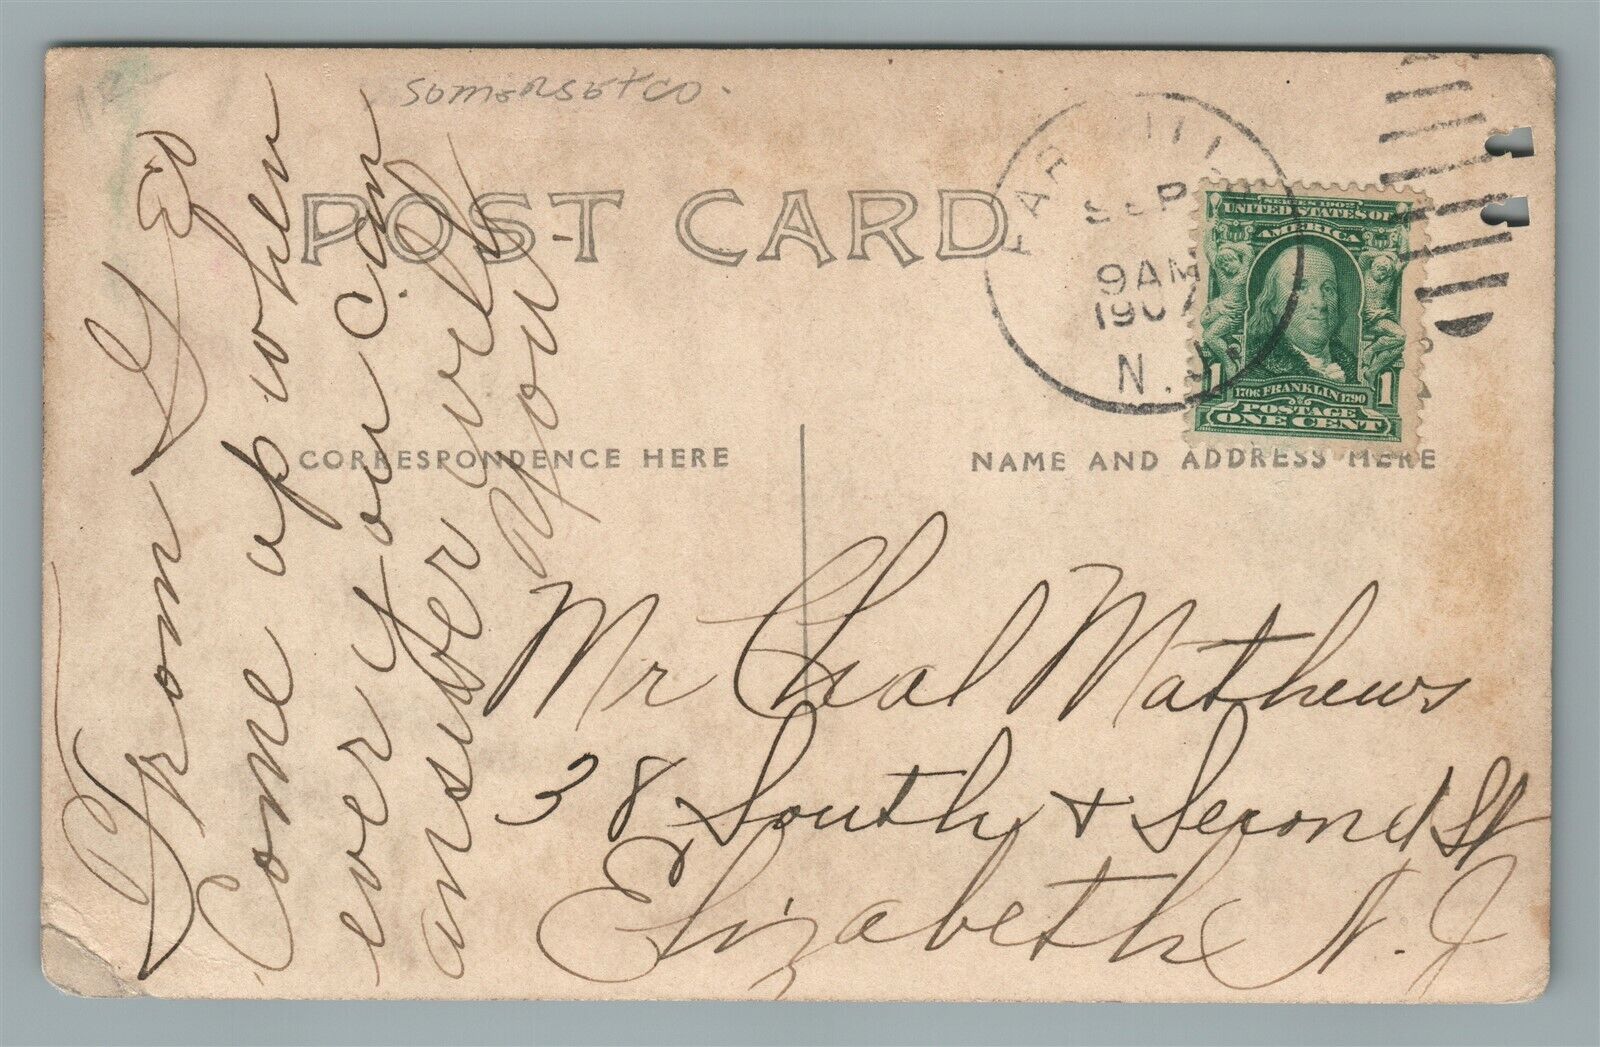 Somerset co.
POST CARD
FAR HILLS
SEP
9 AM
1907
N.J.
SERIES 1902
UNITED STATES OF
AMERICA
1 1706 FRANKLIN 1790 1
POSTAGE
ONE CENT
CORRESPONDENCE HERE
NAME AND ADDRESS HERE
From
Come up when
ever you can
answer will
you
Mr Chal Mathews
38 South & Second St
Elizabeth N. J